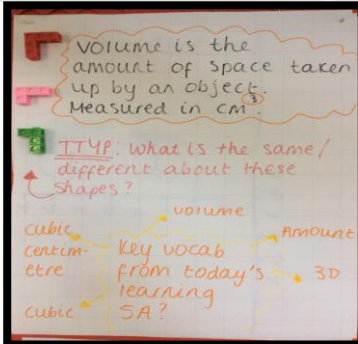 Volume is the
amount of space taken
up by an object.
Measured in cm³.
TTYP: What is the same/
different about these
shapes?
volume
cubic
centim-
etre
Amount
Key vocab
from today's
learning
5A?
3D
cubic